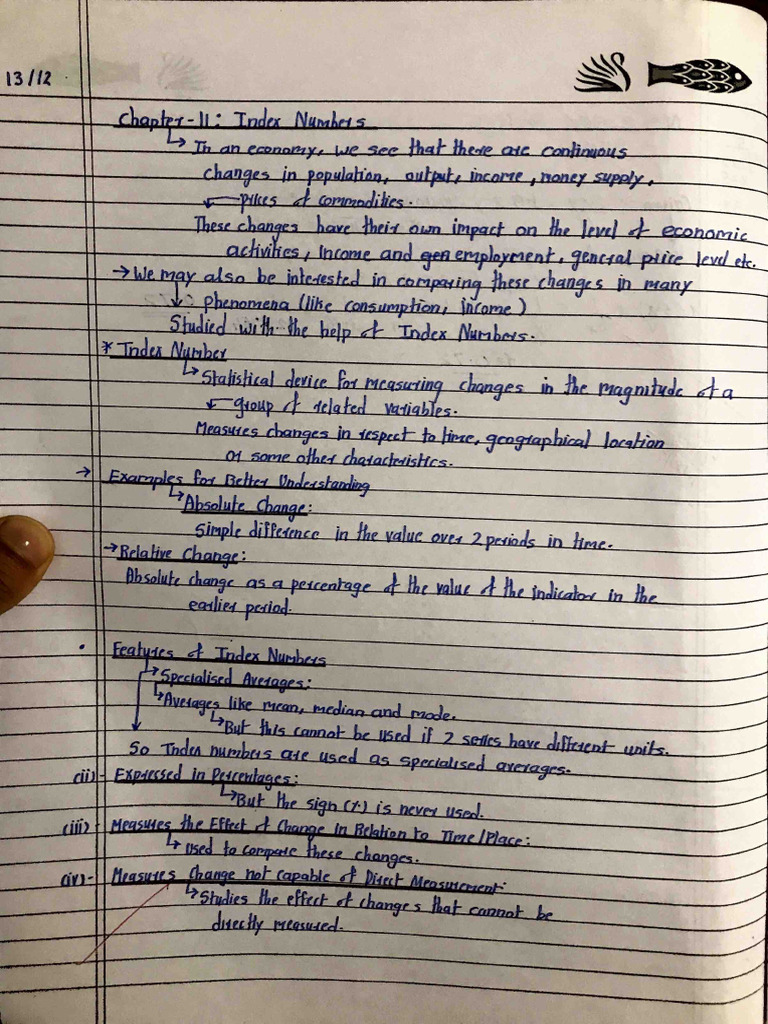 13/12
Chapter-11: Index Numbers
↳ In an economy, we see that there are continuous
changes in population, output, income, money supply,
prices of commodities.
These changes have their own impact on the level of economic
activities, income and employment, general price level etc.
→ We may also be interested in comparing these changes in many
phenomena (like consumption, income)
Studied with the help of Index Numbers.
* Index Number
↳ Statistical device for measuring changes in the magnitude of a
group of related variables.
Measures changes in respect to time, geographical location
or some other characteristics.
→ Examples for Better Understanding
↳ Absolute Change:
Simple difference in the value over 2 periods in time.
→ Relative Change:
Absolute change as a percentage of the value of the indicator in the
earlier period.
• Features of Index Numbers
↳ Specialised Averages:
↳ Averages like mean, median and mode.
↳ But this cannot be used if 2 series have different units.
So Index numbers are used as specialised averages.
(ii)- Expressed in Percentages:
↳ But the sign (%) is never used.
(iii)- Measures the Effect of Change in Relation to Time/Place:
↳ Used to compare these changes.
(iv)- Measures Change not capable of Direct Measurement:
↳ Studies the effect of changes that cannot be
directly measured.